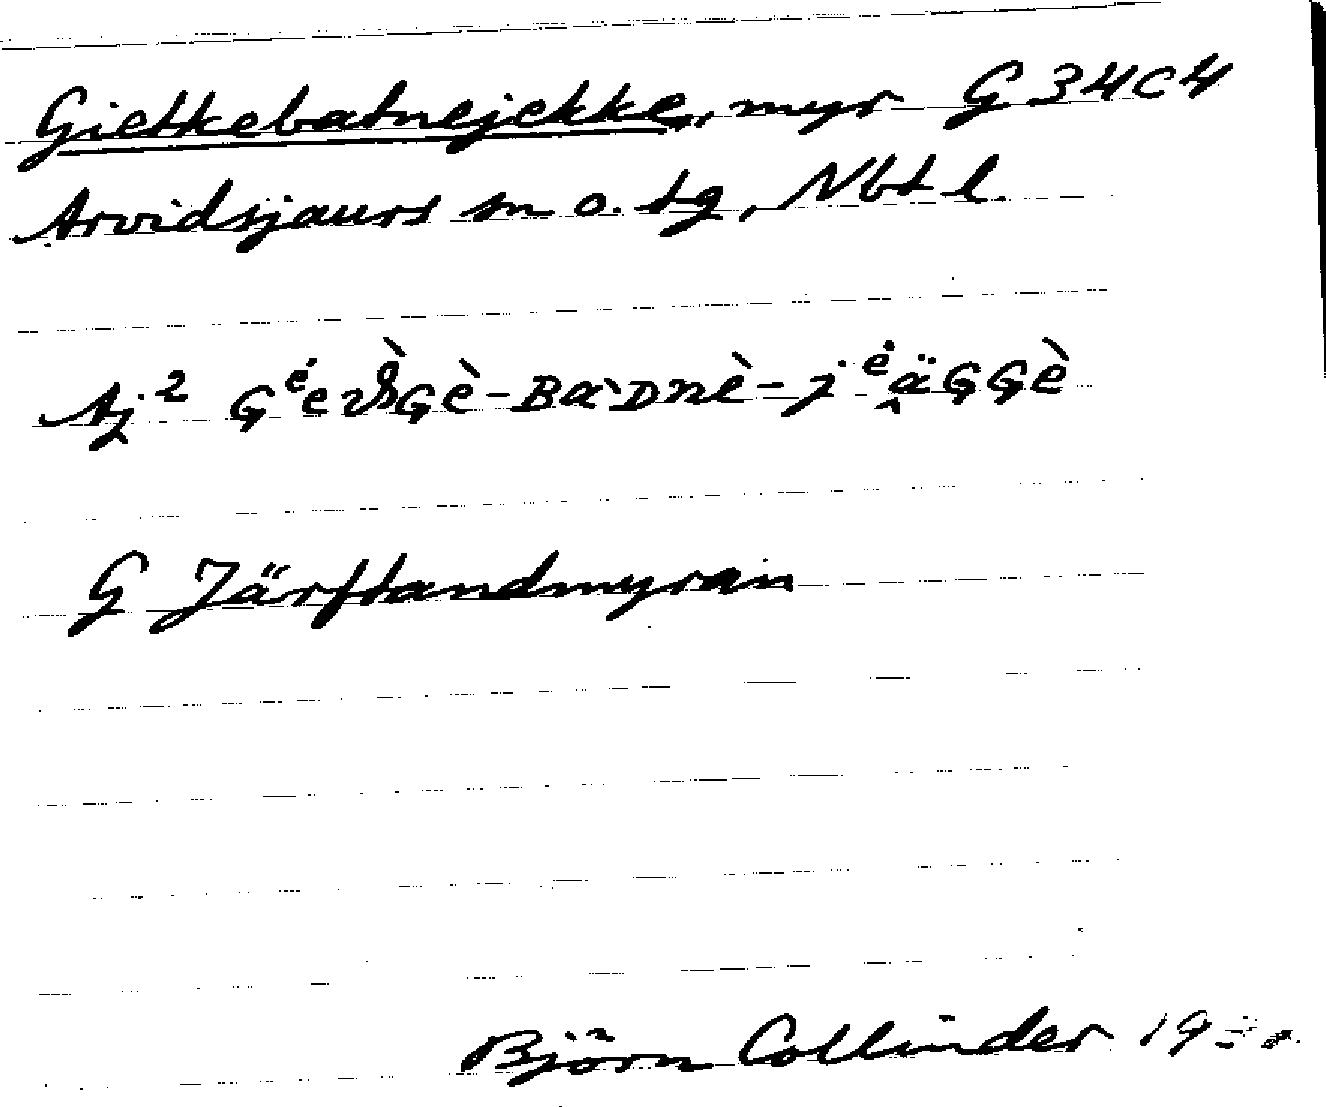 Gietkebatnejekke, myr G 34C4
Arvidsjaurs sn o. tg, Nbt l.
Aj² Gᵉ̀eᴠϑ̀Gè-Bàᴅnè-jᵉ̀äGGè
G Järftandmyran
Björn Collinder 19